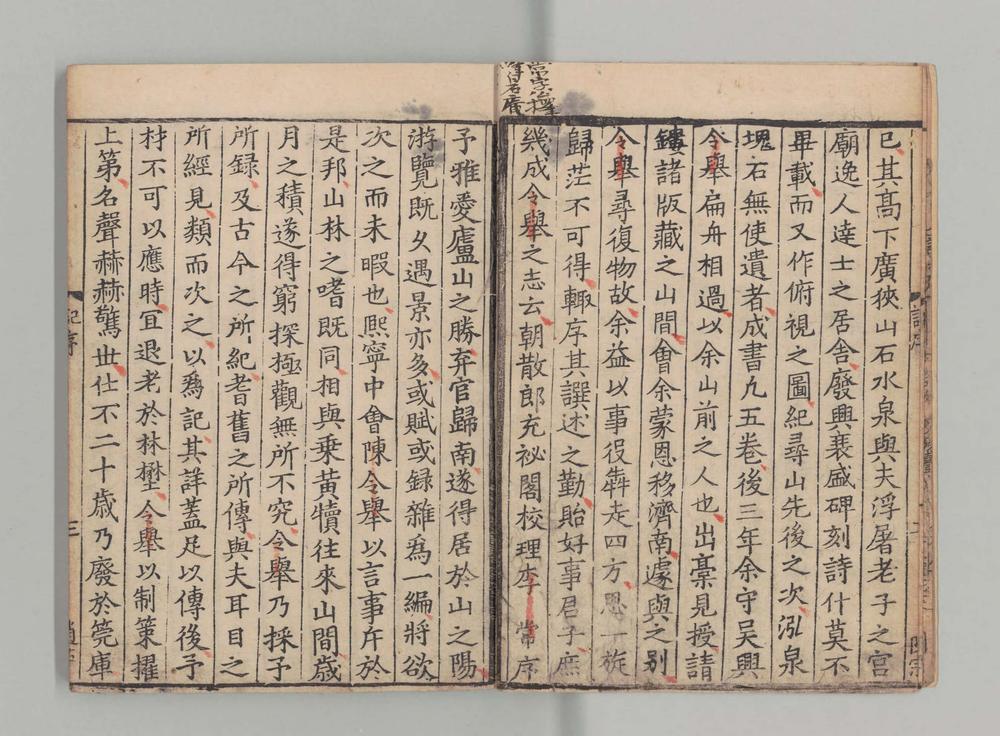 已其高下廣狹山石水泉與夫浮屠老子之宮
廟逸人達士之居舍廢興衰盛碑刻詩什莫不
畢載而又作俯視之圖紀尋山先後之次泓泉
塊石無使遺者成書凡五卷後三年余守吳興
令舉扁舟相過以余山前之人也出藁見授請
鏤諸版藏之山間會余蒙恩移濟南遽與之别
令舉尋復物故余益以事役犇走四方恩一旋
歸茫不可得輙序其譔述之勤貽好事君子庶
幾成令舉之志云朝散郎充祕閣校理李常序
予雅愛廬山之勝弃官歸南遂得居於山之陽
游覽既久遇景亦多或賦或録雜爲一編將欲
次之而未暇也熙寧中會陳令舉以言事斥於
是邦山林之嗜既同相與乗黄犢往來山間歲
月之積遂得窮探極觀無所不究令舉乃採予
所録及古今之所紀耆舊之所傳與夫耳目之
所經見類而次之以爲記其詳蓋足以傳後予
材不可以應時冝退老於林壄令舉以制策擢
上第名聲赫赫驚世仕不二十歲乃廢於筦庫
記序
三